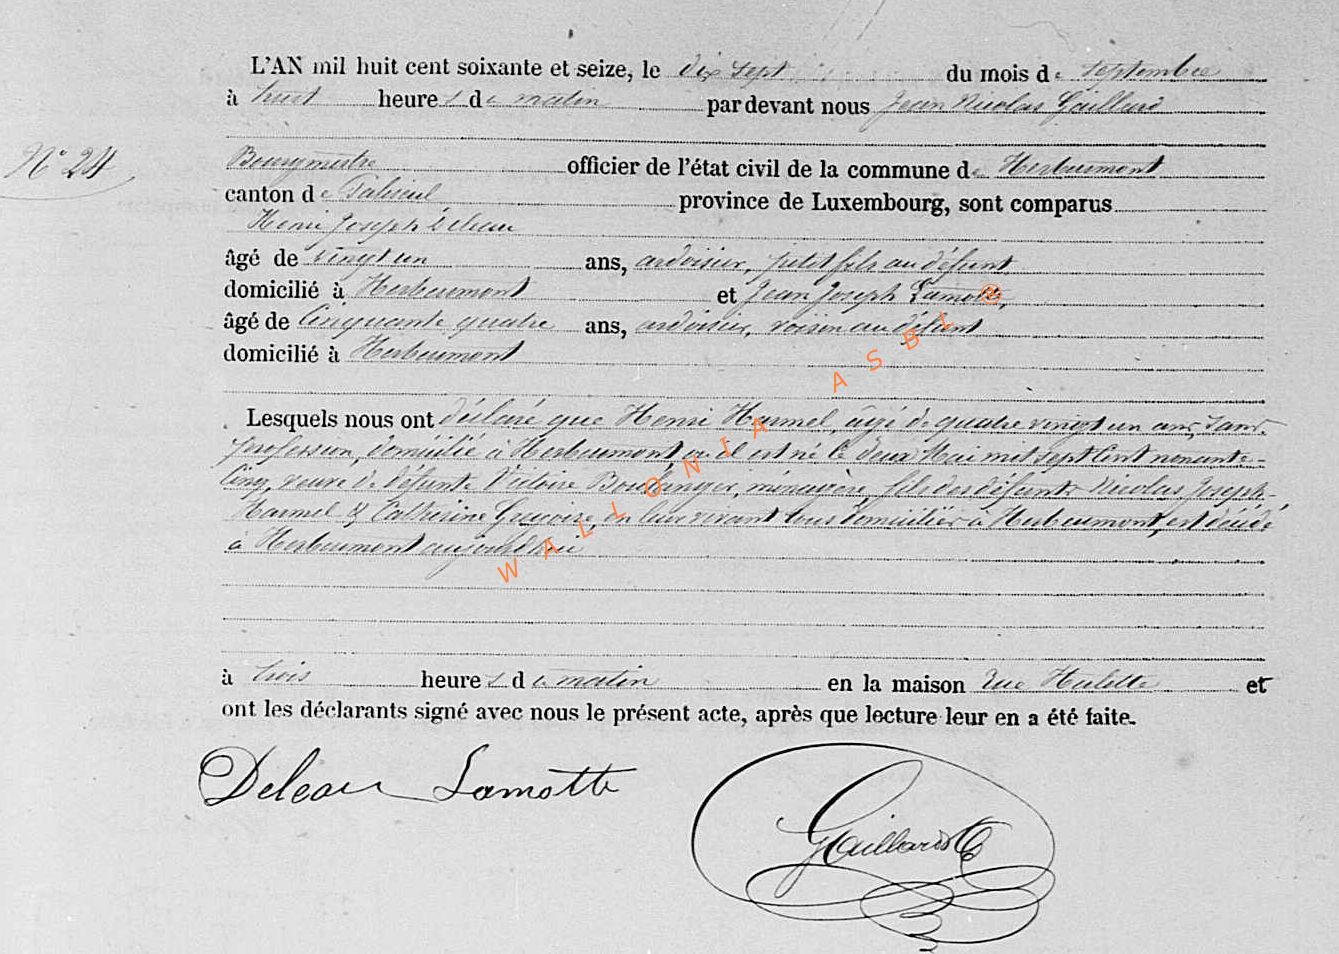 L'AN mil huit cent soixante et seize, le dix sept du mois de septembre
à huit heures de matin par devant nous Jean Nicolas Gaillard
N° 24
Bourgmestre officier de l'état civil de la commune de Herbeumont
canton de Paliseul province de Luxembourg, sont comparus
Henri Joseph Deleau
âgé de vingt un ans, ardoisier, petit fils au défunt
domicilié à Herbeumont et Jean Joseph Lamotte,
âgé de Cinquante quatre ans, ardoisier, voisin au défunt
domicilié à Herbeumont
Lesquels nous ont déclaré que Henri Hamel, âgé de quatre vingt un ans, sans
profession, domicilié à Herbeumont, où il est né le deux Mai mil sept Cent nonante-
Cinq, veuve de défunte Victoire Boulanger, ménagère, fils des défunts Nicolas Joseph
Hamel & Catherine en leur vivant tous domiciliés à Herbeumont, est décédé
à Herbeumont aujourd'hui
à trois heures de matin en la maison rue Hulette et
ont les déclarants signé avec nous le présent acte, après que lecture leur en a été faite.
Deleau Lamotte
Gaillard
WALLONIA ASBL ®